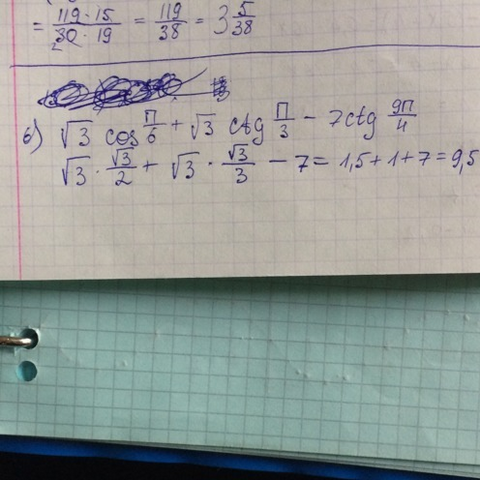 = 119·15/30·19 2 = 119/38 = 3 5/38
б) √3 cos П/6 + √3 ctg П/3 - 7ctg 9П/4
√3 · √3/2 + √3 · √3/3 - 7 = 1,5+1+7=9,5